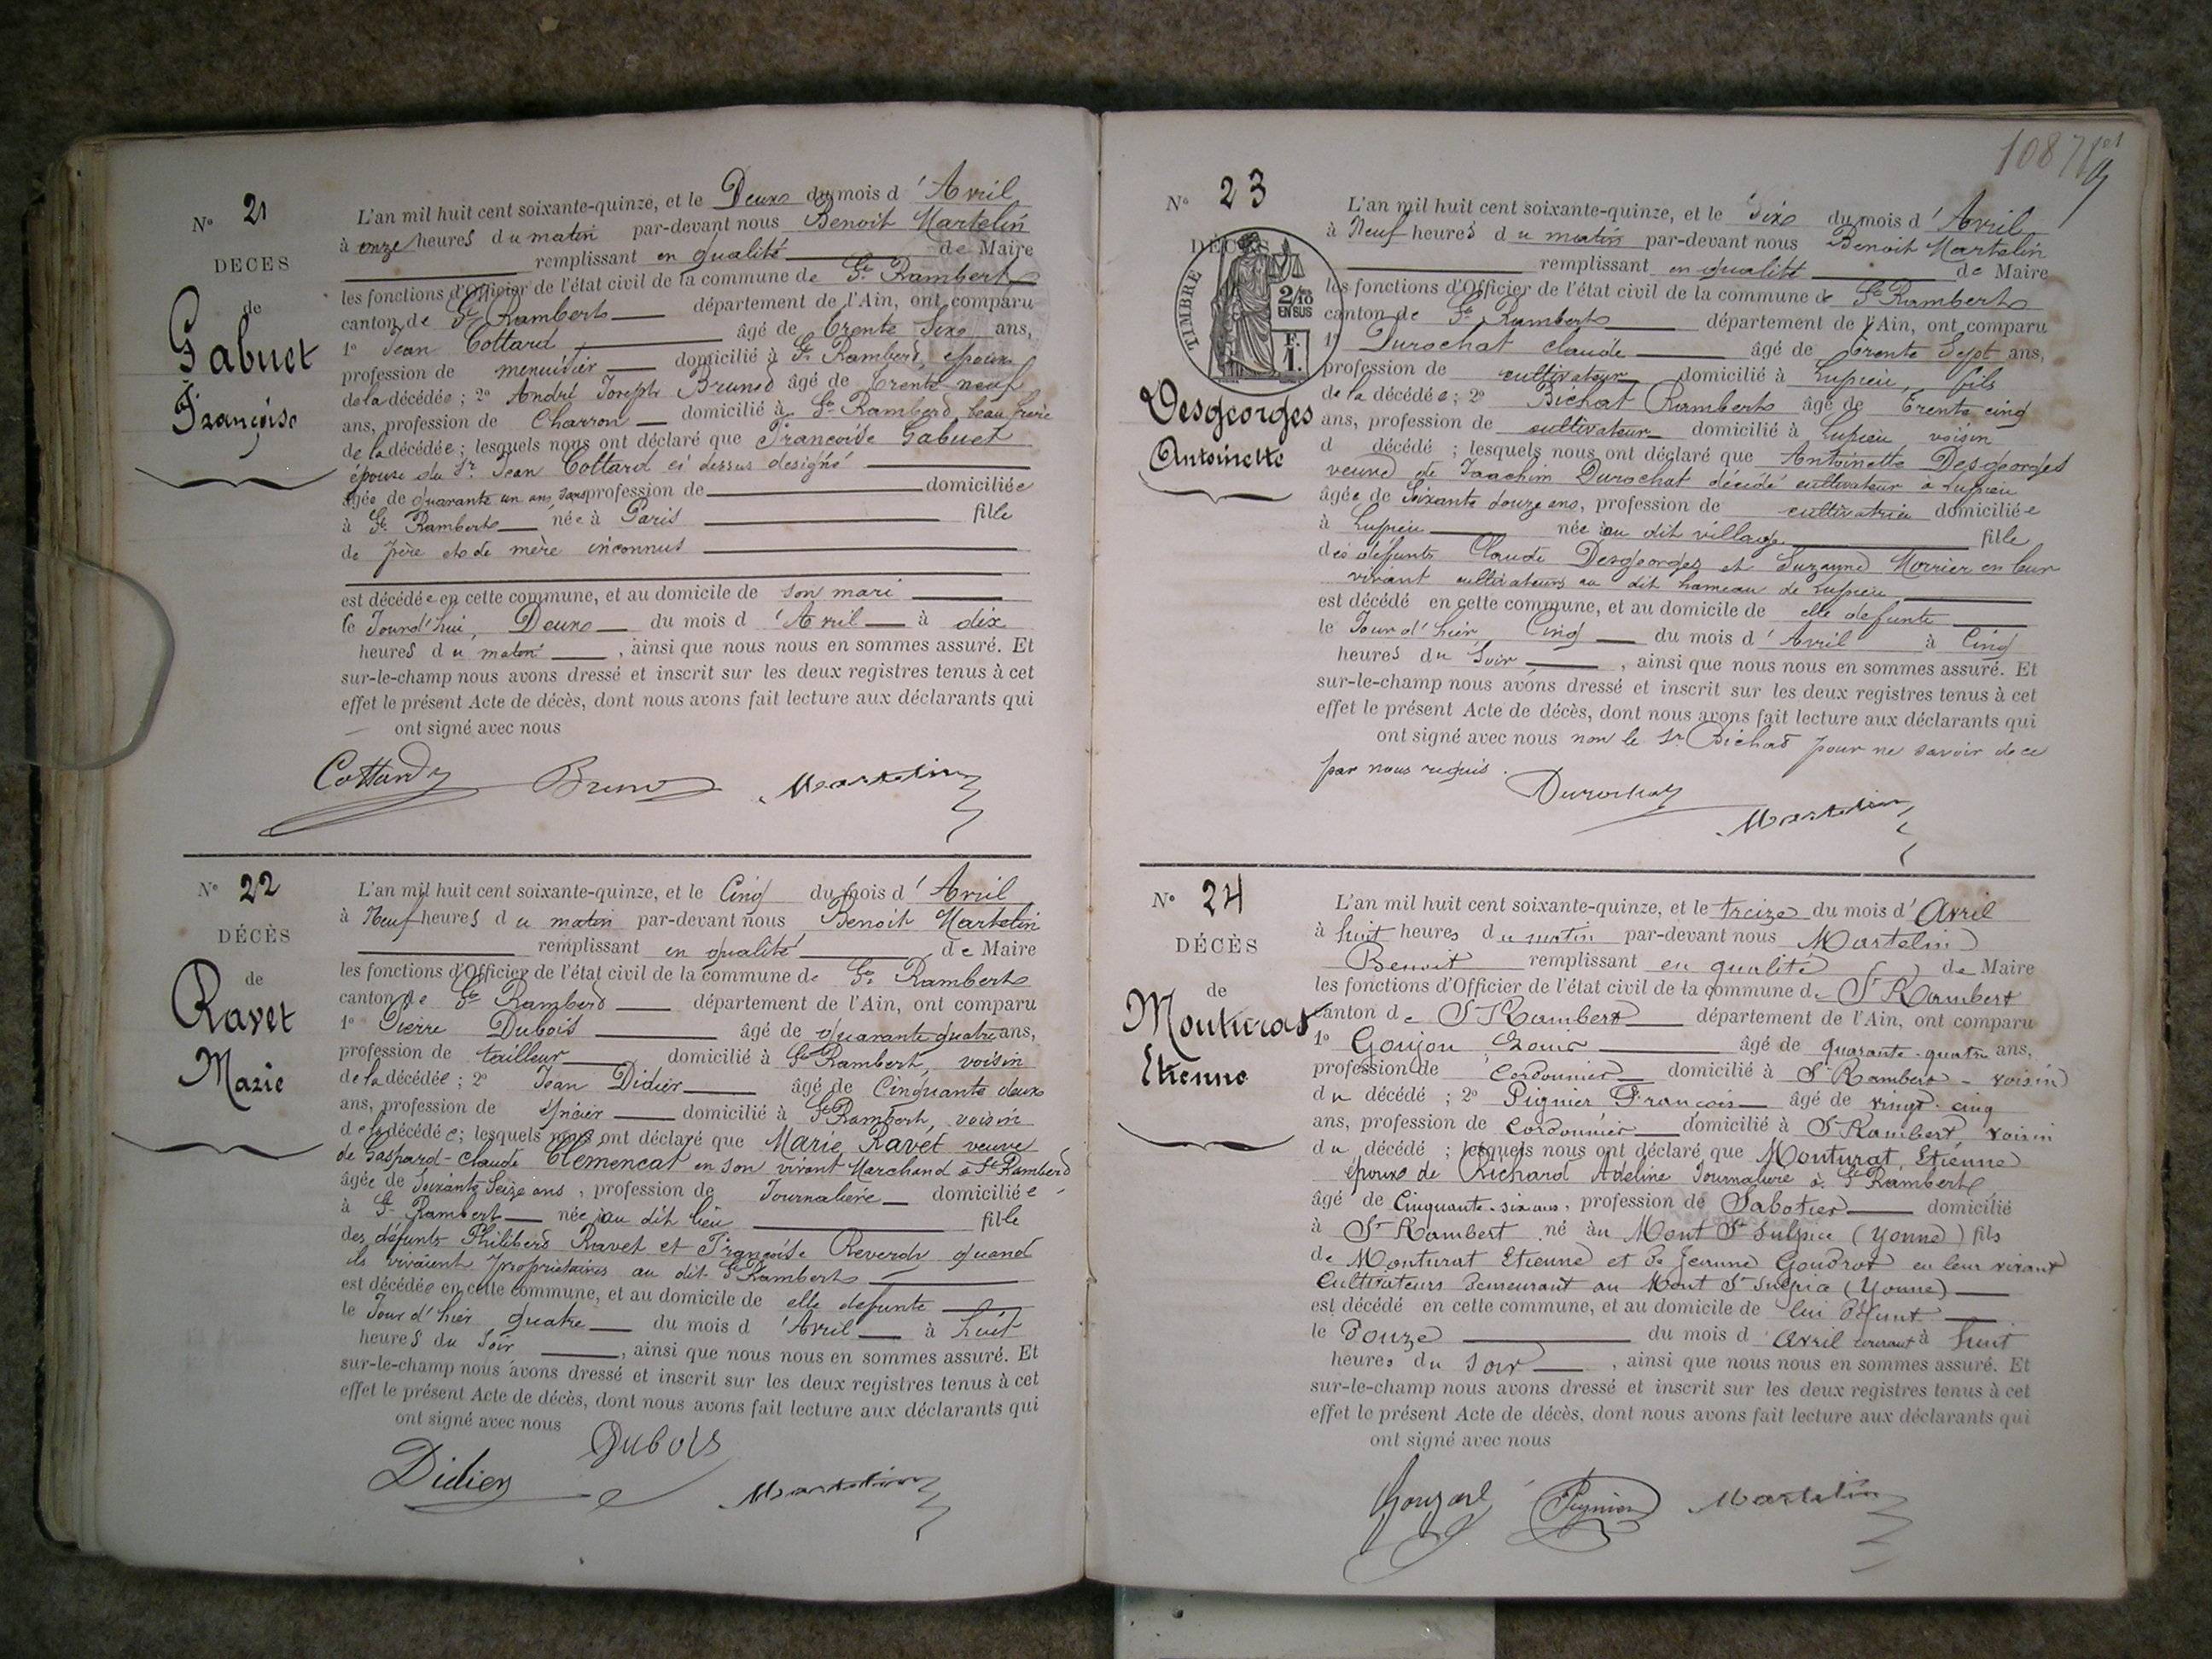 N° 21
DÉCÈS
de
Gabuet
Françoise
L'an mil huit cent soixante-quinze, et le Deux du mois d'Avril
à onze heures du matin par-devant nous Benoit Martelin
remplissant en qualité de Maire
les fonctions d'Officier de l'état civil de la commune de St Rambert
canton de St Rambert département de l'Ain, ont comparu
1° Jean Cottard âgé de trente six ans,
profession de menuisier domicilié à St Rambert, époux
de la décédée ; 2° André Joseph Brunod âgé de trente neuf
ans, profession de Charron domicilié à St Rambert, beau frère
de la décédée ; lesquels nous ont déclaré que Françoise Gabuet
épouse du Sr Jean Cottard ci dessus designé
âgée de quarante un ans, sans profession de domiciliée
à St Rambert née à Paris fille
de père et de mère inconnus
est décédée en cette commune, et au domicile de son mari
le Jourd'hui, Deux du mois d'Avril à dix
heures du matin, ainsi que nous nous en sommes assuré. Et
sur-le-champ nous avons dressé et inscrit sur les deux registres tenus à cet
effet le présent Acte de décès, dont nous avons fait lecture aux déclarants qui
ont signé avec nous
Cottard Martelin
N° 22
DÉCÈS
de
Ravet
Marie
L'an mil huit cent soixante-quinze, et le Cinq du mois d'Avril
à Neuf heures du matin par-devant nous Benoit Martelin
remplissant en qualité de Maire
les fonctions d'Officier de l'état civil de la commune de St Rambert
canton de St Rambert département de l'Ain, ont comparu
1° Pierre Dubois âgé de quarante quatre ans,
profession de tailleur domicilié à St Rambert, voisin
de la décédée ; 2° Jean Didier âgé de Cinquante deux
ans, profession de épicier domicilié à St Rambert, voisin
de la décédée ; lesquels nous ont déclaré que Marie Ravet veuve
de Gaspard-Claude Clemencat en son vivant Marchand à St Rambert
âgée de Soixante Seize ans, profession de Journalière domiciliée
à St Rambert née au dit lieu fille
des défunts Philibert Ravet et Françoise Reverdy quand
ils vivaient propriétaires au dit St Rambert
est décédée en cette commune, et au domicile de elle defunte
le Jour d'hier quatre du mois d'Avril à huit
heures du Soir, ainsi que nous nous en sommes assuré. Et
sur-le-champ nous avons dressé et inscrit sur les deux registres tenus à cet
effet le présent Acte de décès, dont nous avons fait lecture aux déclarants qui
ont signé avec nous
Dubois
Didier Martelin
1087
N° 23
DÉCÈS
TIMBRE
2/10
EN SUS
F.
1.
Desgeorges
Antoinette
L'an mil huit cent soixante-quinze, et le Six du mois d'Avril
à Neuf heures du matin par-devant nous Benoit Martelin
remplissant en qualité de Maire
les fonctions d'Officier de l'état civil de la commune de St Rambert
canton de St Rambert département de l'Ain, ont comparu
1° Durochat Claude âgé de trente Sept ans,
profession de cultivateur domicilié à Lupieu, fils
de la décédée ; 2° Bichat Rambert âgé de trente cinq
ans, profession de cultivateur domicilié à Lupieu voisin
d décédé ; lesquels nous ont déclaré que Antoinette Desgeorges
veuve de Joachim Durochat décédé cultivateur à Lupieu
âgée de Soixante douze ans, profession de cultivatrice domiciliée
à Lupieu née au dit village fille
des défunts Claude Desgeorges et Suzanne Morrier en leur
vivant cultivateurs au dit hameau de Lupieu
est décédé en cette commune, et au domicile de elle defunte
le Jour d'hier Cinq du mois d'Avril à Cinq
heures du Soir, ainsi que nous nous en sommes assuré. Et
sur-le-champ nous avons dressé et inscrit sur les deux registres tenus à cet
effet le présent Acte de décès, dont nous avons fait lecture aux déclarants qui
ont signé avec nous non le Sr Bichat pour ne savoir de ce
par nous requis.
Durochat
Martelin
N° 24
DÉCÈS
de
Monturat
Etienne
L'an mil huit cent soixante-quinze, et le treize du mois d'Avril
à huit heures du matin par-devant nous Martelin
Benoit remplissant en qualité de Maire
les fonctions d'Officier de l'état civil de la commune de St Rambert
canton de St Rambert département de l'Ain, ont comparu
1° Goujon Louis âgé de quarante-quatre ans,
profession de Cordonnier domicilié à St Rambert - voisin
du décédé ; 2° Pignier François âgé de vingt-cinq
ans, profession de Cordonnier domicilié à St Rambert, voisin
du décédé ; lesquels nous ont déclaré que Monturat, Etienne
époux de Richard Adeline Journalière à St Rambert
âgé de Cinquante-six ans, profession de Sabotier domicilié
à St Rambert né au Mont St Sulpice (Yonne) fils
de Monturat Etienne et de Jeanne Goudrot en leur vivant
Cultivateurs demeurant au Mont St Sulpice (Yonne)
est décédé en cette commune, et au domicile de lui défunt
le Douze du mois d'avril courant à huit
heures du soir, ainsi que nous nous en sommes assuré. Et
sur-le-champ nous avons dressé et inscrit sur les deux registres tenus à cet
effet le présent Acte de décès, dont nous avons fait lecture aux déclarants qui
ont signé avec nous
Pignier Martelin